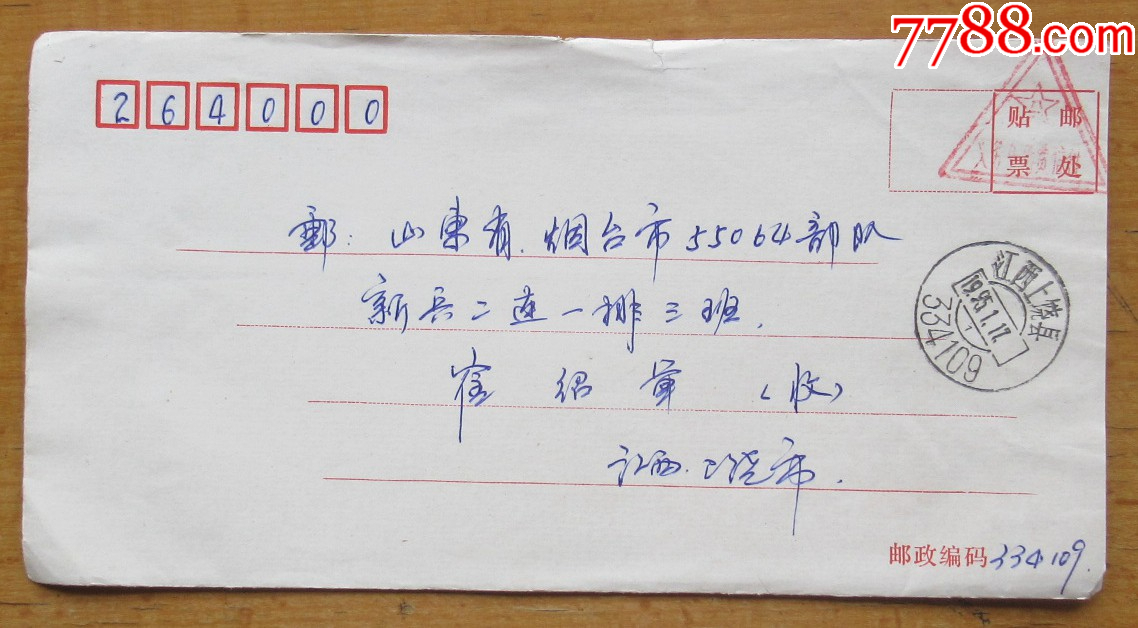 7788.com
264000
贴邮
票处
邮: 山東省.烟台市55064部队
江西上饶县
1995.1.17.
7
334109
新兵二连一排三班.
崔绍军(收)
江西.上饶市.
邮政编码334109.